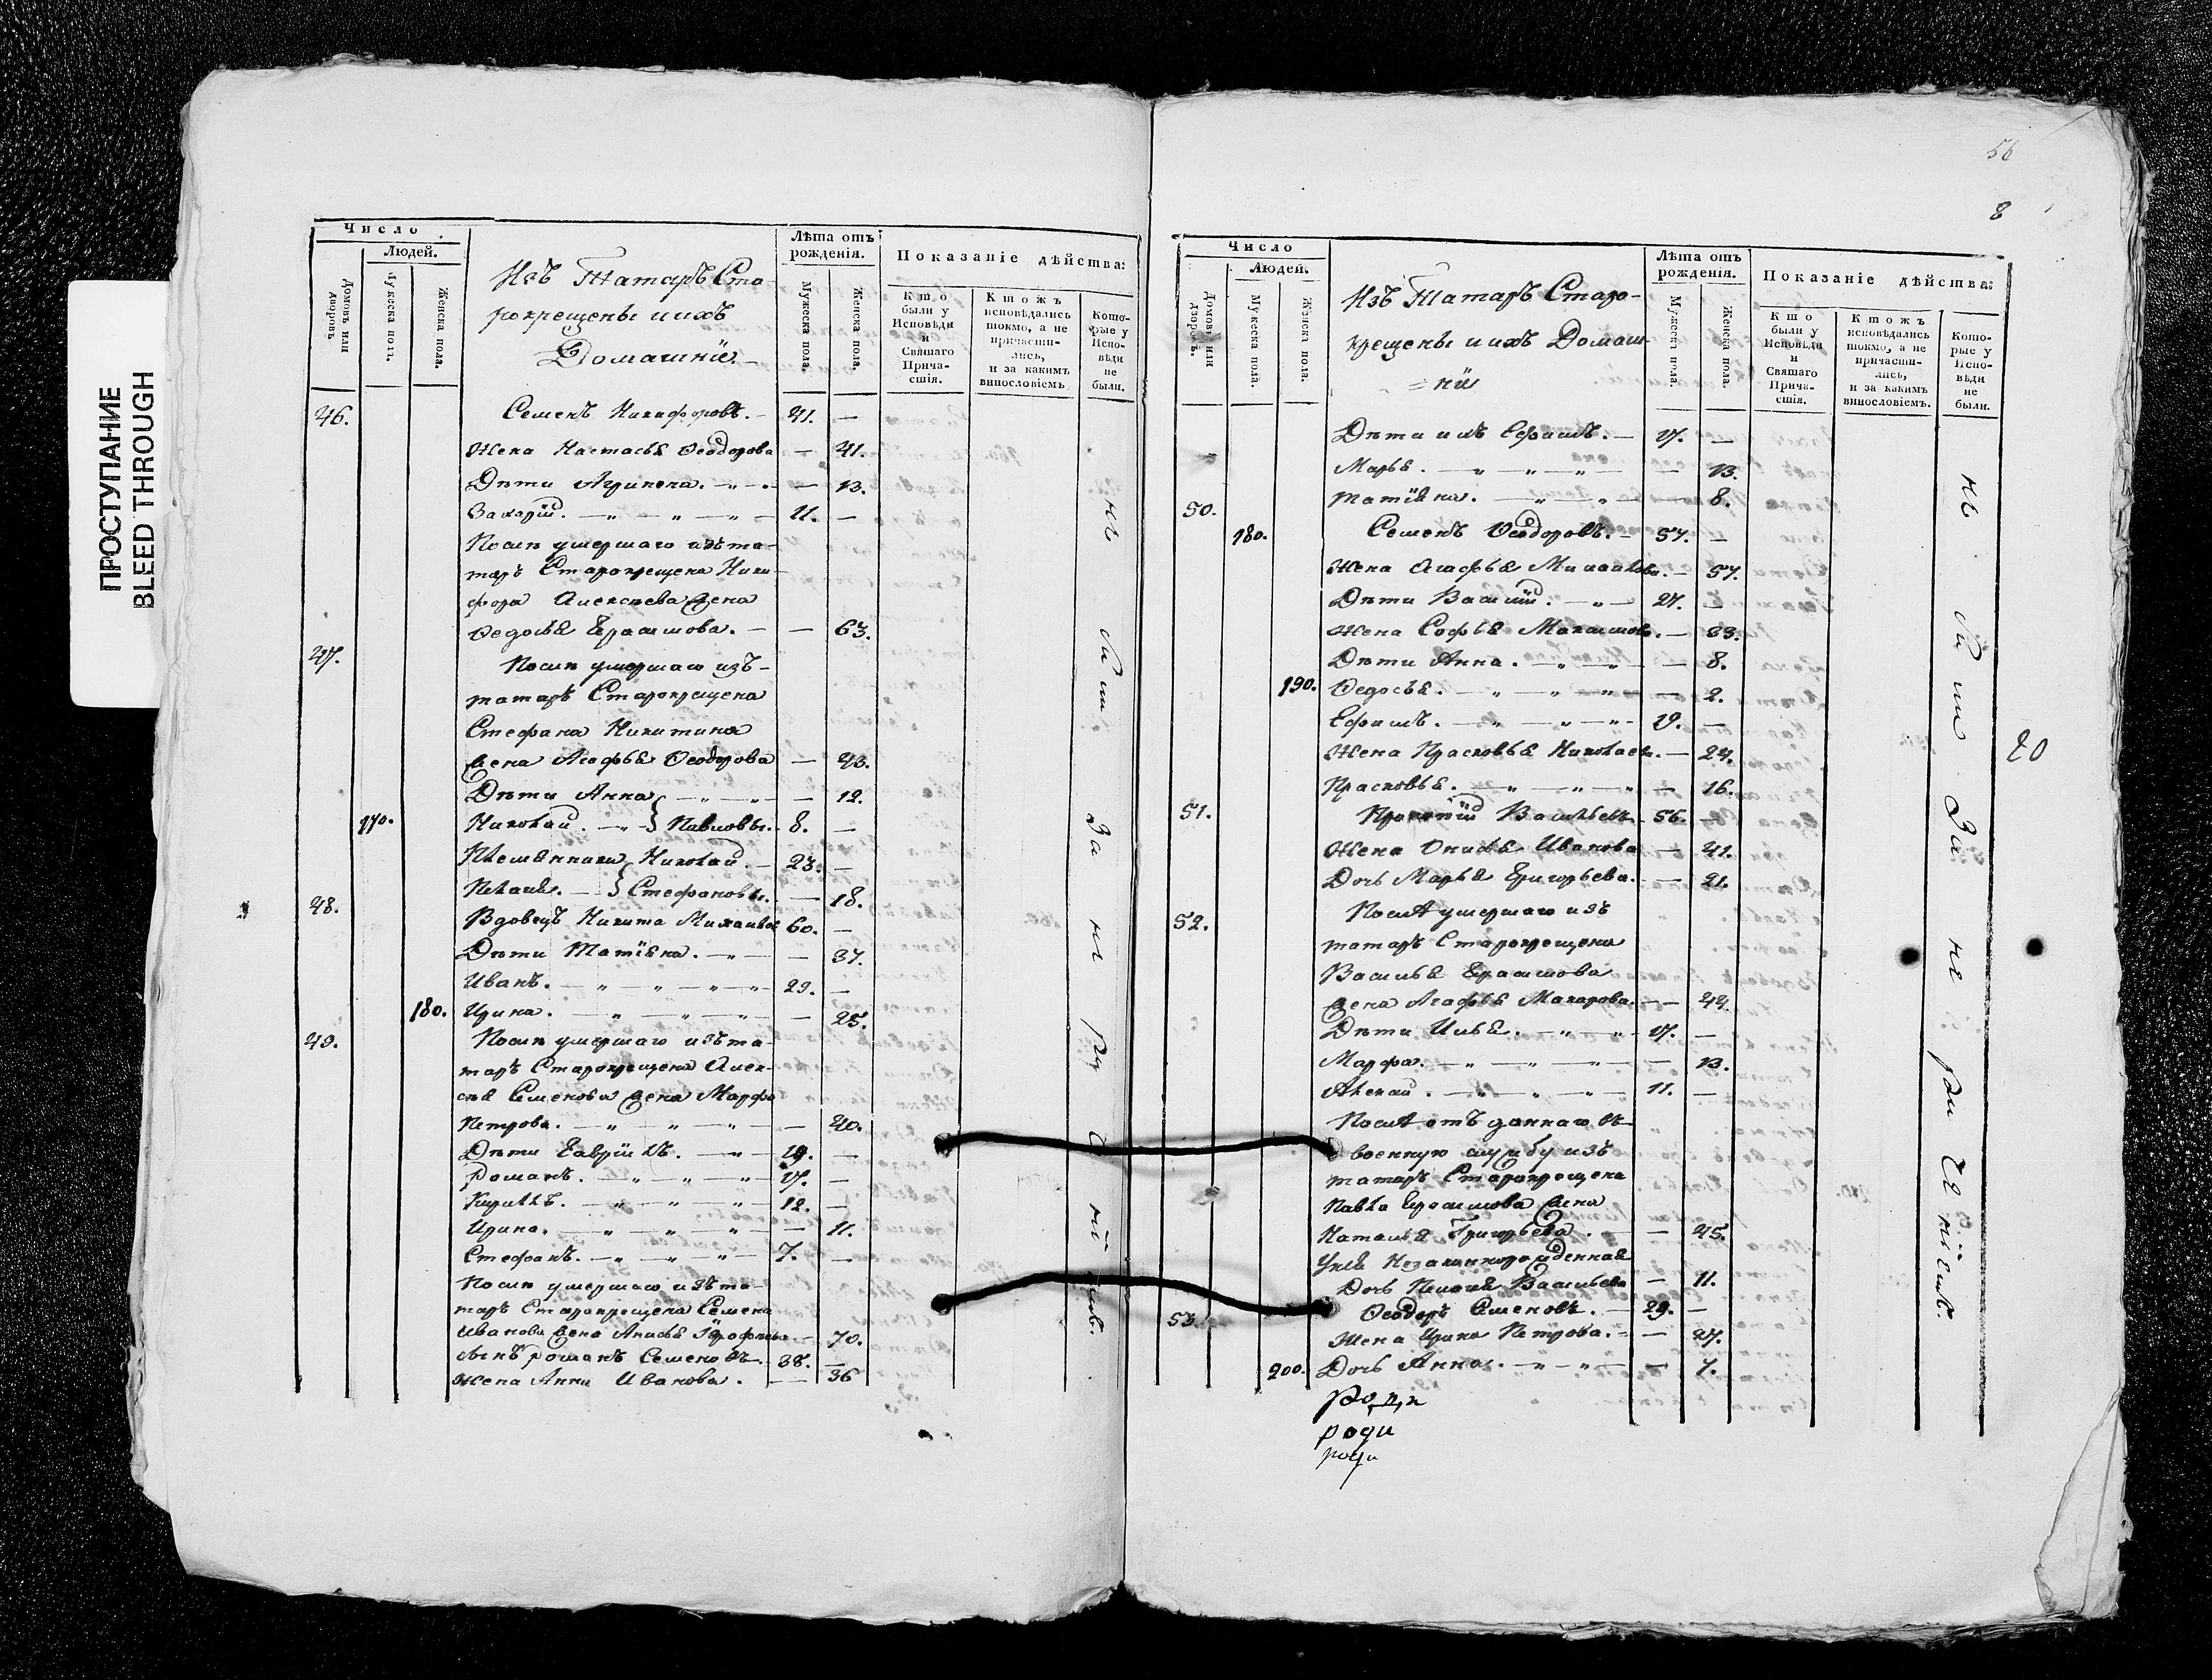 ПРОСТУПАНИЕ
BLEED THROUGH
Число
Людей.
Домовъ или дворовъ
Мужеска пола.
Женска пола.
Изъ Татаръ Ста-
рокрещены и ихъ
Домашніе.
Лѣта отъ рожденія.
Мужеска пола.
Женска пола.
Показаніе дѣйства:
Кто были у Исповѣди и Святаго Причастія.
Ктожъ исповѣдались токмо, а не причастились, и за какимъ винословіемъ
Которые у Исповѣди не были.
46. Семенъ Никифоровъ. 41. —
Жена Настасья Ѳеодорова — 41.
Дѣти Агрипена. — 13.
Захарій. 11. —
Послѣ умершаго изъ та-
таръ Старокрещена Ники-
фора Алексѣева жена
Ѳедосья Герасимова. — 63.
47. Послѣ умершаго изъ
татаръ Старокрещена
Стефана Никитина
жена Агафья Ѳеодорова — 43.
Дѣти Анна — 12.
170. Николай. } Павловы. 8. —
Племянники Николай. 23. —
Пелагія. } Стефановы. — 18.
48. Вдовецъ Никита Михайловъ 60. —
Дѣти Татіяна. — 37.
Иванъ. 29. —
180. Ирина. — 25.
49. Послѣ умершаго изъ та-
таръ Старокрещена Алек-
сѣя Семенова жена Марфа
Петрова. — 40.
Дѣти Гавріилъ. 19. —
Романъ. 17. —
Кирилъ. 12. —
Ирина. — 11.
Стефанъ. 7. —
Послѣ умершаго изъ та-
таръ Старокрещена Семена
Иванова жена — 70.
сынъ Романъ Семеновъ. 38. —
Жена Анна Иванова. — 36
56
8
Число
Людей.
Домовъ или дворовъ.
Мужеска пола.
Женска пола.
Изъ Татаръ Старо-
крещены и ихъ Домаш-
=ніи
Лѣта отъ рожденія.
Мужеска пола.
Женска пола.
Показаніе дѣйства:
Кто были у Исповѣди и Святаго Причастія.
Ктожъ исповѣдались токмо, а не причастились, и за какимъ винословіемъ.
Которые у Исповѣди не были.
20
Дѣти ихъ Ефимъ. 17. —
Марья. — 13.
Татіяна. — 8.
50. 180. Семенъ Ѳеодоровъ. 57. —
Жена Агафья Михайлова. — 57.
Дѣти Василій. 27. —
Жена Софья Максимова. — 33.
Дѣти Анна. — 8.
190. Ѳедосья. — 2.
Ефимъ. 19. —
Жена Прасковья Николаева. — 24.
Прасковья. — 16.
51. Прокопій Васильевъ 56. —
Жена Иванова — 41.
Дочь Марья Григорьева. — 21.
52. Послѣ умершаго изъ
татаръ Старокрещена
Василья Герасимова
жена Агафья Макарова. — 44.
Дѣти Илья. 17. —
Марфа. — 13.
Алексѣй. 11. —
Послѣ отъданнаго въ
военную службу изъ
татаръ Старокрещена
Павла Герасимова жена
Наталья Григорьева. — 45.
У нея Незаконнорожденная
Дочь Пелагія Васильева — 11.
53. Ѳеодоръ Семеновъ. 29. —
Жена Ирина Петрова. — 27.
200. Дочь Анна. — 7.
роди
роди
роди